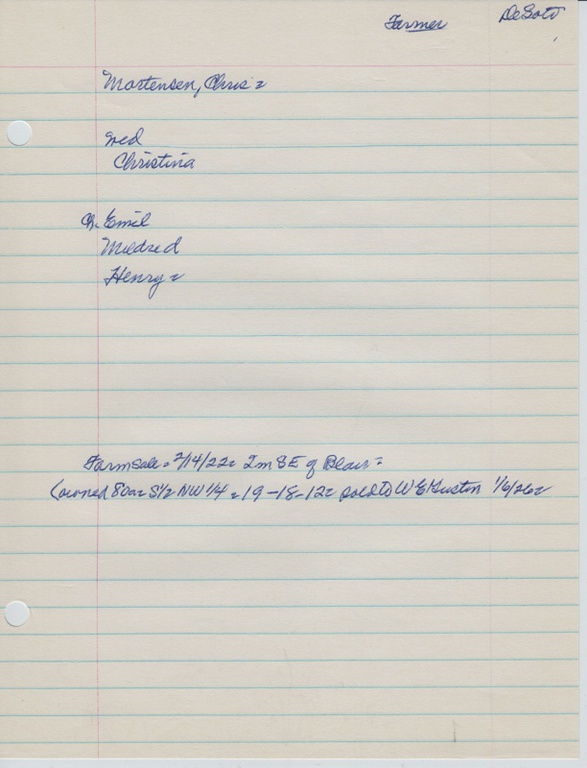 Farmer DeSoto
Mortensen, Chris =
Wed
Christina
Ch. Emil
Mildred
Henry =
Farm Sale = 2/14/22 = 2 m SE of Blair =
(owned 80a = S1/2 NW 1/4 = 19-18-12 = sold to W E 1/6/26 =